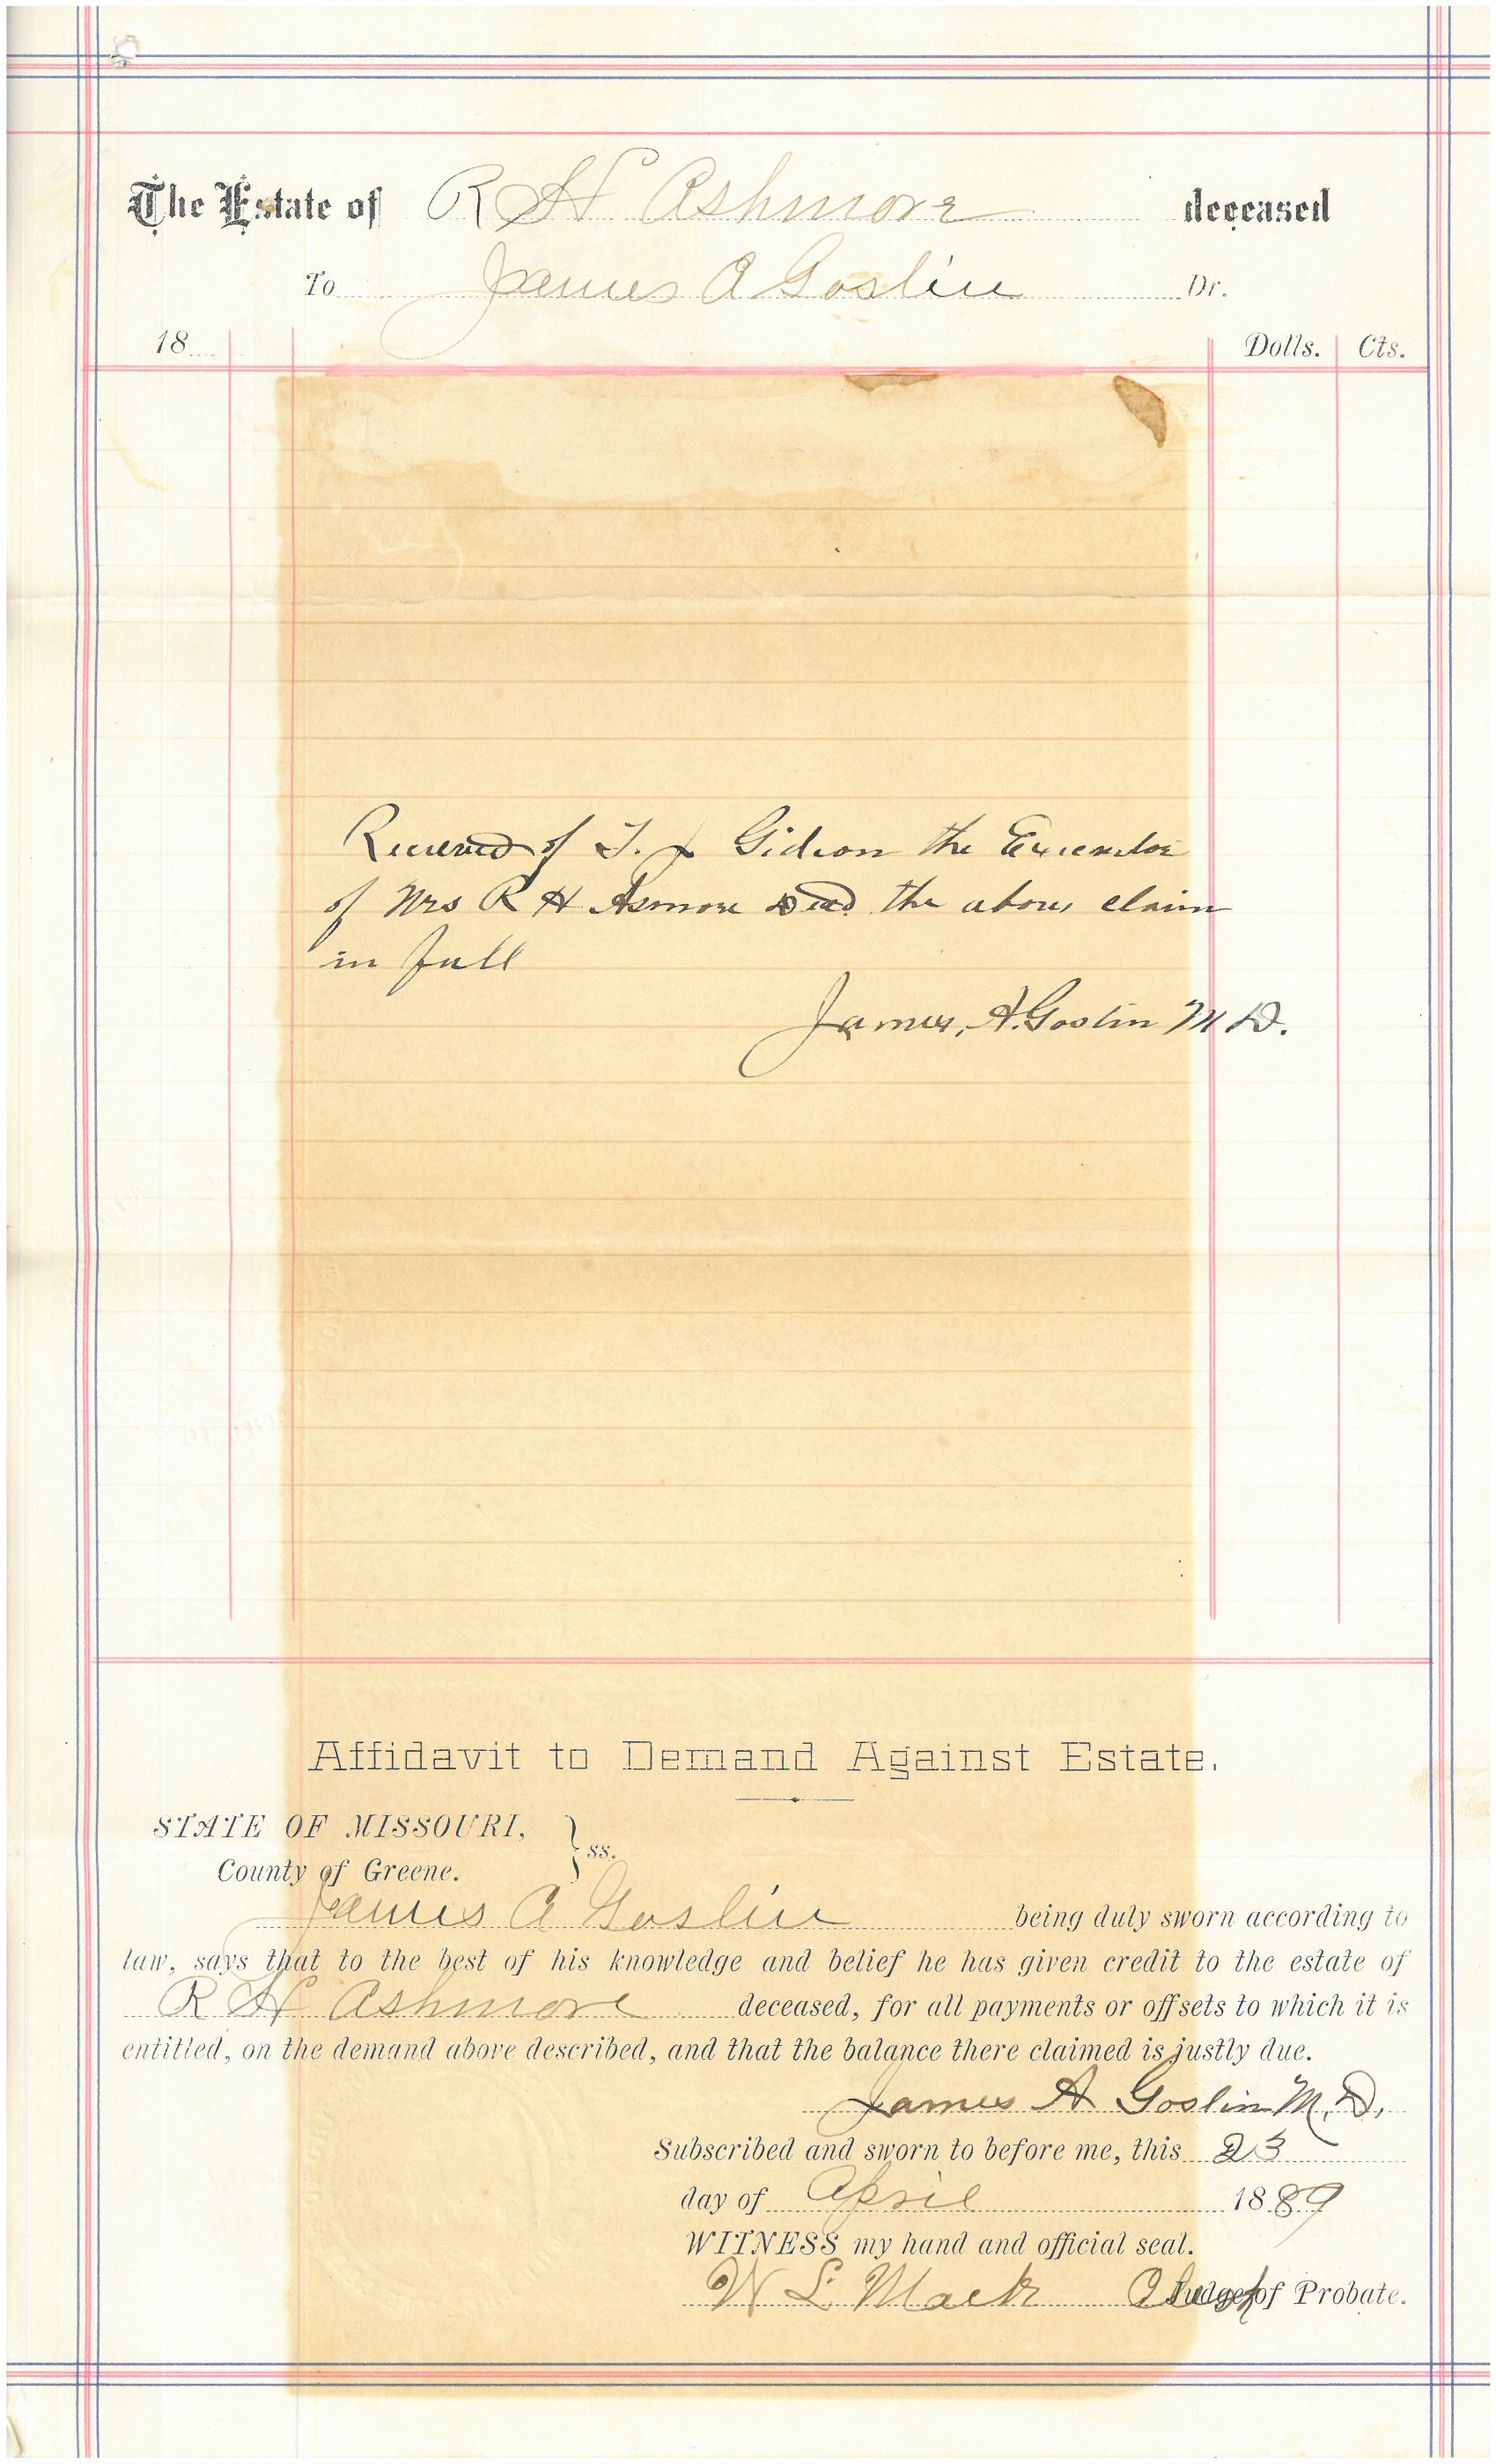 The Estate of R H Ashmore deceased
To James A Goslin Dr.
18 Dolls. Cts.
Received of T. J. Gideon the Executor
of Mrs R H Asmore Decd the above claim
in full
James, A. Goslin M D.
Affidavit to Demand Against Estate.
STATE OF MISSOURI, } ss.
County of Greene.
James A Goslin being duly sworn according to
law, says that to the best of his knowledge and belief he has given credit to the estate of
R H Ashmore deceased, for all payments or offsets to which it is
entitled, on the demand above described, and that the balance there claimed is justly due.
James A Goslin M.D.
Subscribed and sworn to before me, this 23
day of April 1889
WITNESS my hand and official seal.
W L Mack Clerk Judge of Probate.